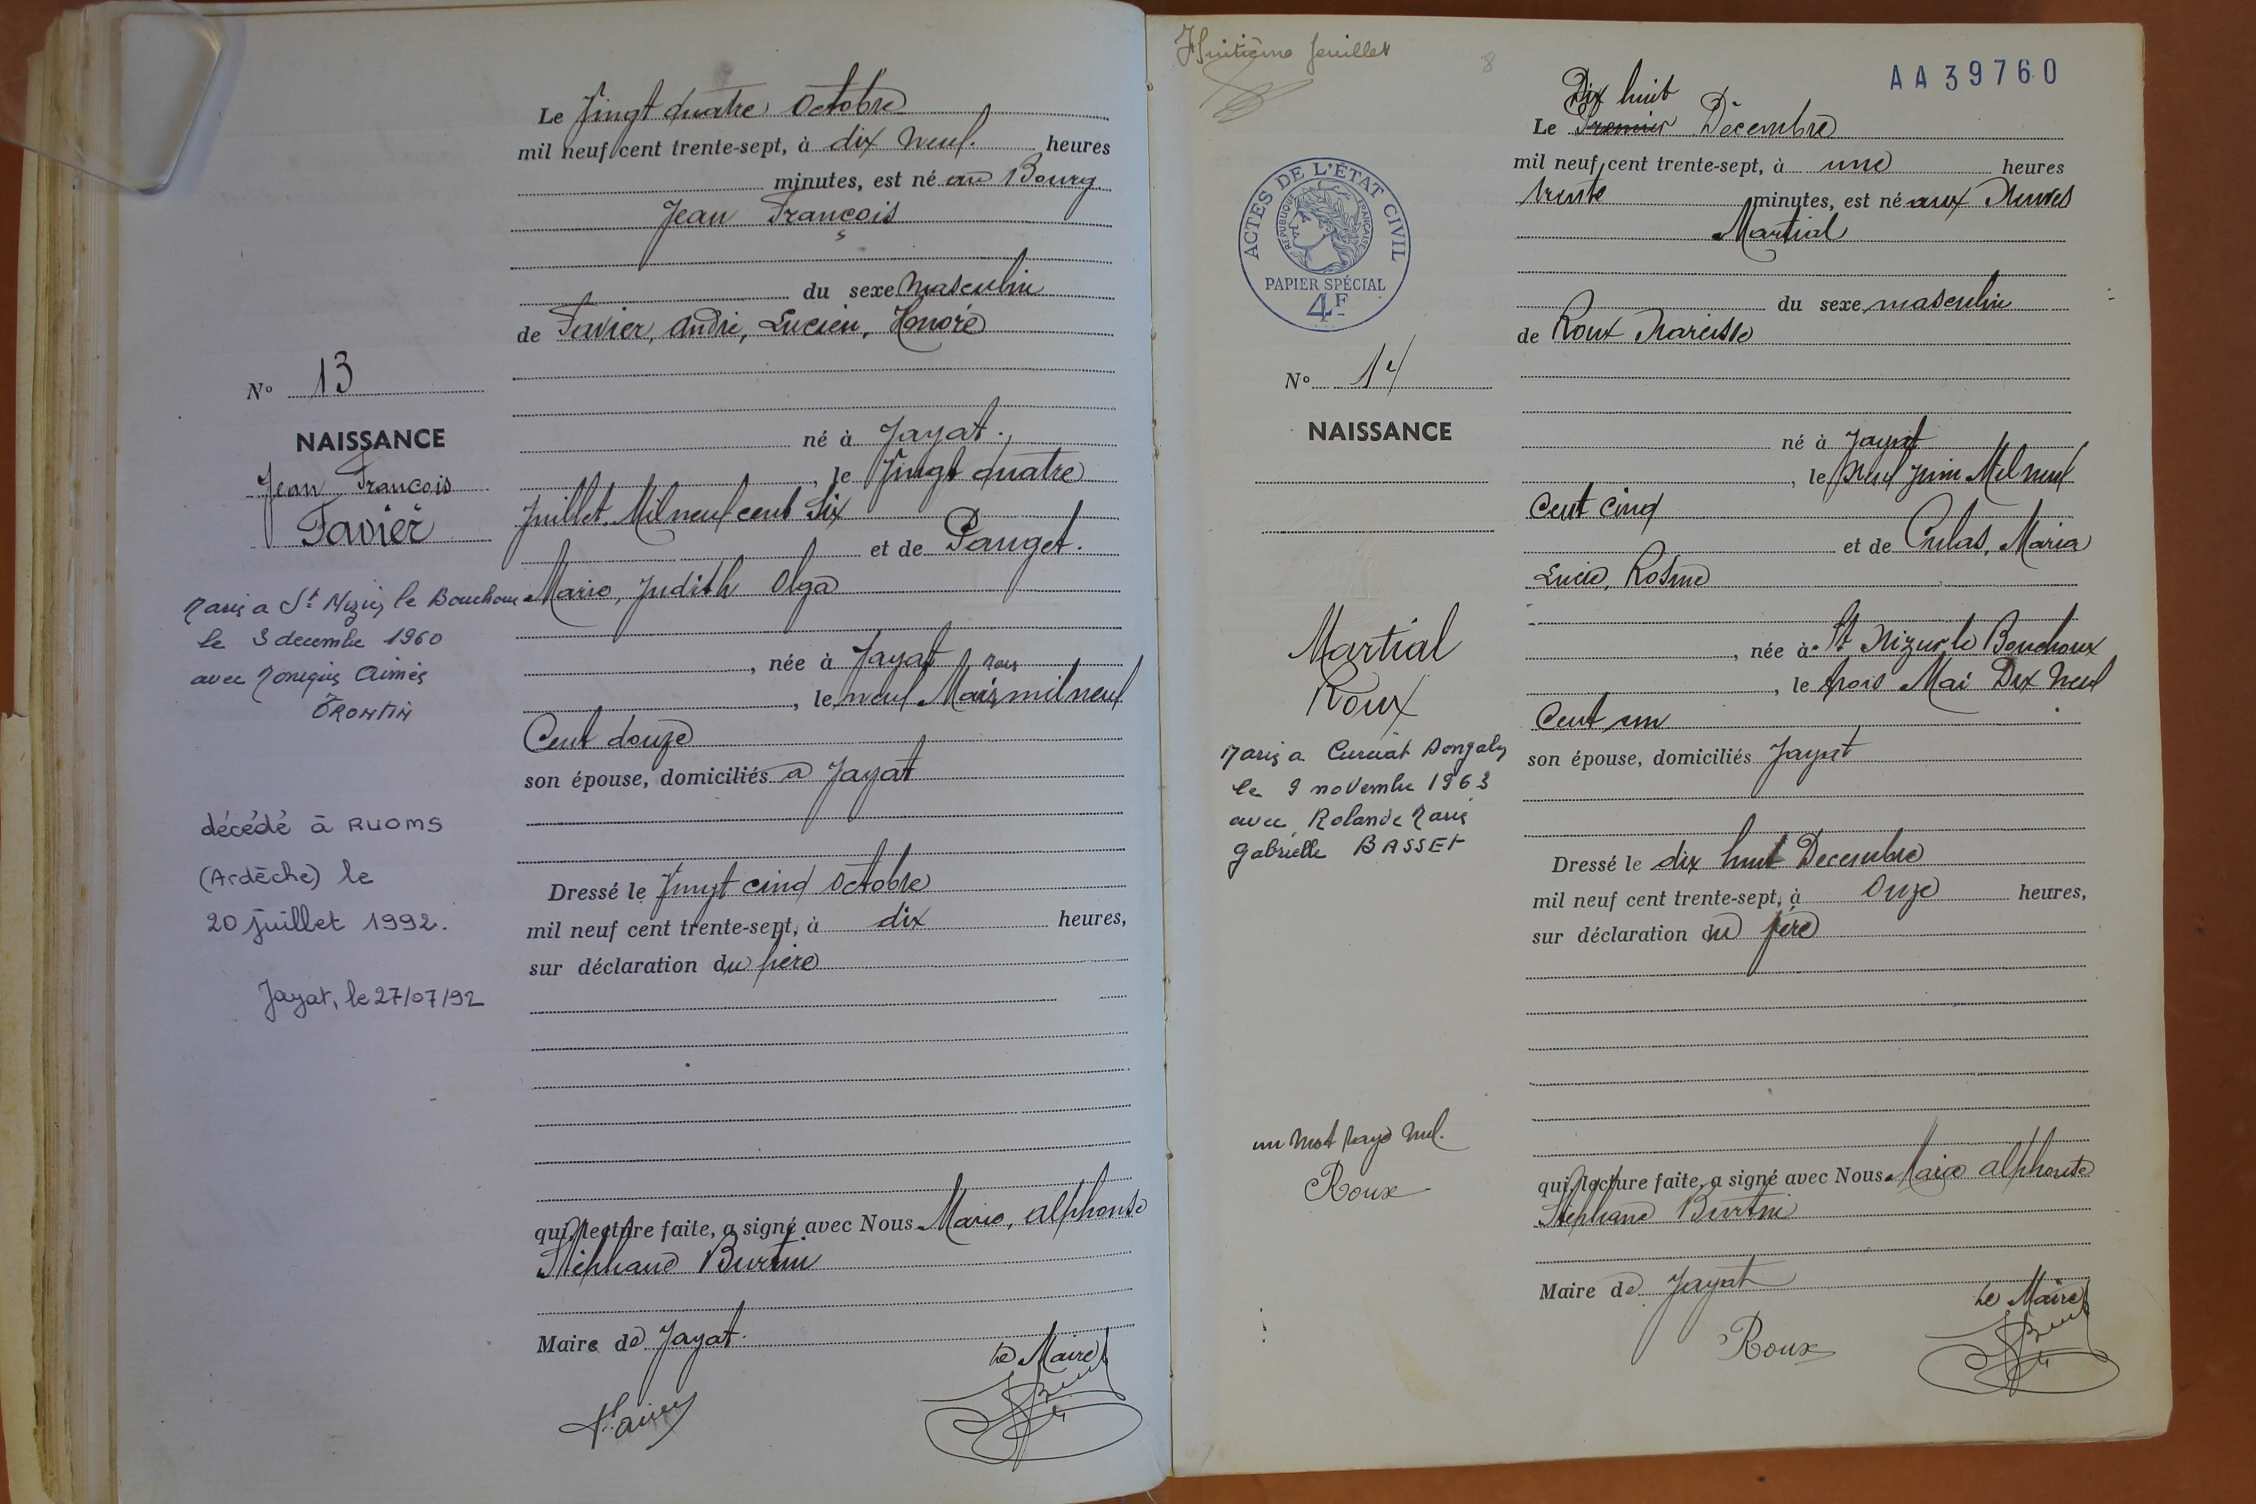 Le Vingt quatre Octobre
mil neuf cent trente-sept, à dix neuf heures
minutes, est né au Bourg
Jean François
du sexe masculin
de Favier, André, Lucien, Honoré
N° 13
NAISSANCE
Jean François
Favier
né à Jayat
, le Vingt quatre
Juillet Mil neuf cent Six
et de Pauget.
Marie, Judith Olga
, née à Jayat
, le neuf Mars mil neuf
Cent douze
son épouse, domiciliés à Jayat
Marié a St Nizier le Bouchoux
le 3 decembre 1960
avec Monique Aimée
décédé à RUOMS
(Ardèche) le
20 juillet 1992.
Jayat, le 27/07/92
Dressé le Vingt cinq Octobre
mil neuf cent trente-sept, à dix heures,
sur déclaration du père
qui, lecture faite, a signé avec Nous Marie, Alphonse
Stéphane Burtin
Maire de Jayat.
Le Maire
Favier
Huitième feuillet
8
AA39760
Dix huit
Le Premier Décembre
mil neuf cent trente-sept, à une heures
trente minutes, est né aux
Martial
du sexe masculin
de Roux Narcisse
ACTES DE L'ÉTAT CIVIL
RÉPUBLIQUE FRANÇAISE
PAPIER SPÉCIAL
4F
N° 14
NAISSANCE
né à Jayat
, le neuf Juin Mil neuf
Cent cinq
et de Culas, Maria
Lucie, Rosine
, née à St Nizier le Bouchoux
, le trois Mai Dix Neuf
Cent un
son épouse, domiciliés Jayat
Martial
Roux
Marié a Curciat Dongalon
le 9 novembre 1963
avec Rolande Marie
Gabrielle BASSET
Dressé le dix huit Decembre
mil neuf cent trente-sept, à Onze heures,
sur déclaration du père
un mot rayé nul.
Roux
qui, lecture faite, a signé avec Nous Marie Alphonse
Stéphane Burtin
Maire de Jayat
Le Maire
Roux